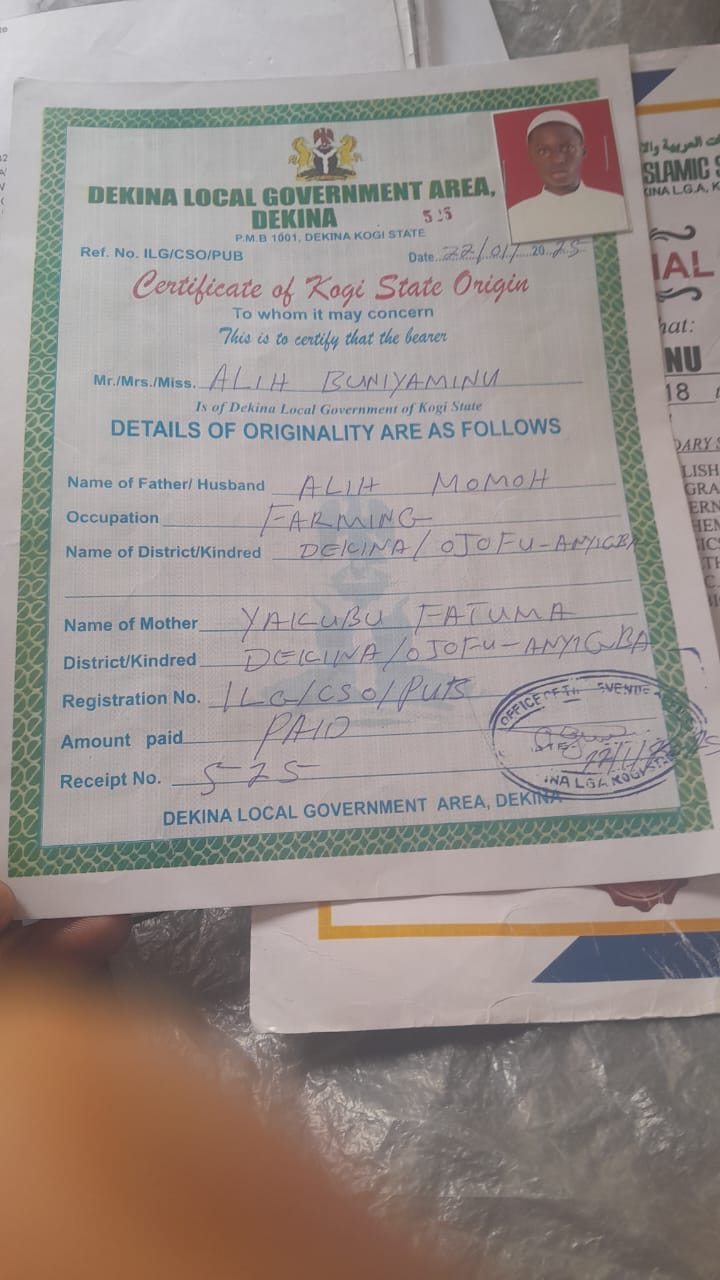 DEKINA LOCAL GOVERNMENT AREA,
DEKINA
525
P.M.B 1001, DEKINA KOGI STATE
Ref. No. ILG/CSO/PUB
Date..22/07/2025
Certificate of Kogi State Origin
To whom it may concern
This is to certify that the bearer
Mr./Mrs./Miss. ALIH BUNIYAMINU
Is of Dekina Local Government of Kogi State
DETAILS OF ORIGINALITY ARE AS FOLLOWS
Name of Father/ Husband ALIH MOMOH
Occupation FARMING
Name of District/Kindred DEKINA/OJOFU-ANYIGBA
Name of Mother YAKUBU FATUMA
District/Kindred DEKINA/OJOFU-ANYIGBA
Registration No. ILG/CSO/PUB
Amount paid PAID
Receipt No. 525
DEKINA LOCAL GOVERNMENT AREA, DEKINA
OFFICE
INA LGA KOGI
SLAMIC
INA L.G.A, K
IAL
hat:
NU
18
DARY S
LISH
GRA
ERN